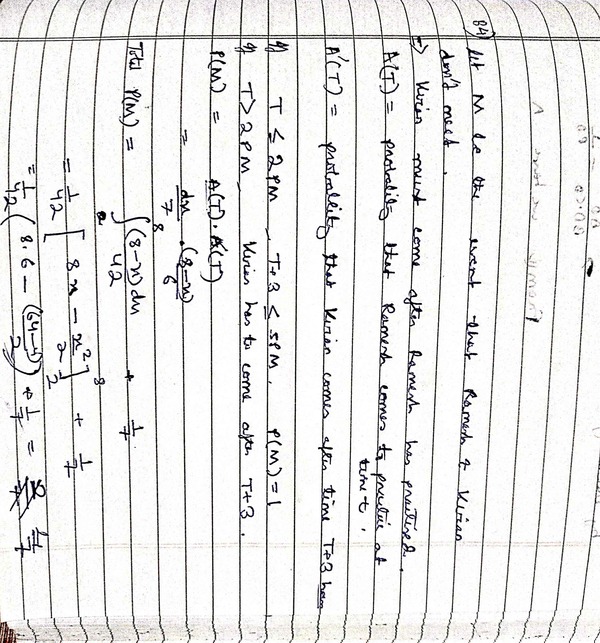 84) Let M be the event that Ramesh & Kiran
don't meet.
⇒ Kiran must come after Ramesh has practised.
A(T) = probability that Ramesh comes to practice at
time t.
A'(T) = probability that Kiran comes after time T+3 hours
If T ≤ 2 PM, T+3 ≤ 5 PM. P(M) = 1
If T > 2 PM, Kiran has to come after T+3.
P(M) = A(T). A'(T)
= dx/7 . (8-x)/6
Total P(M) = ∫ (8-x)dx/42 + 1/7
= 1/42 [8x - x²/2]⁸₂ + 1/7
= 1/42 (8.6 - (64-4)/2) + 1/7 = 4/7